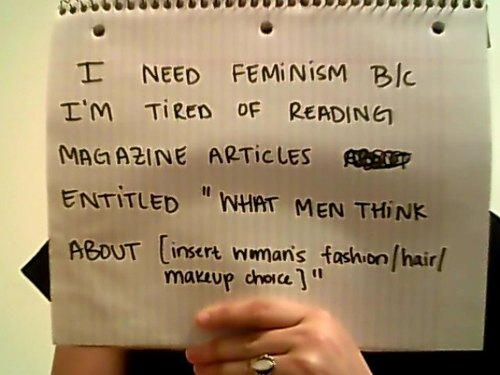 I NEED FEMINISM B/C
I'M TIRED OF READING
MAGAZINE ARTICLES
ENTITLED "WHAT MEN THINK
ABOUT [insert woman's fashion/hair/
makeup choice]"